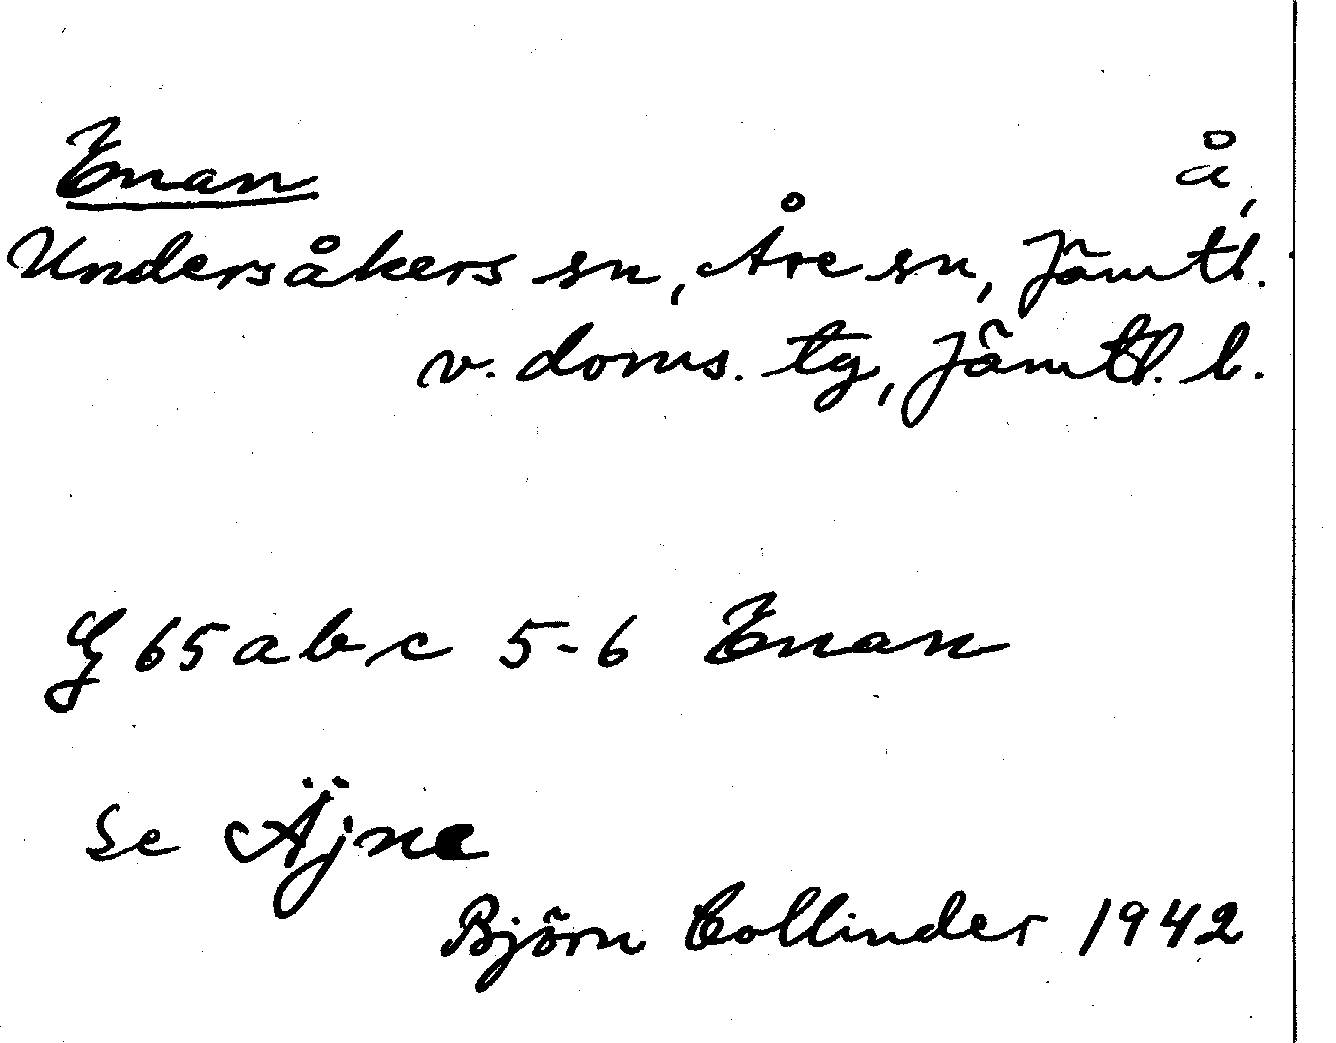 Enan å,
Undersåkers sn, Åre sn, Jämtl.
v. doms. tg, Jämtl. l.
G 65 a b c 5-6 Enan
Se Äjne
Björn Collinder 1942